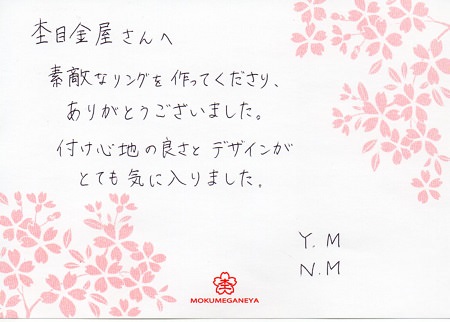 杢目金屋さんへ
素敵なリングを作ってくださり、
ありがとうございました。
付け心地の良さとデザインが
とても気に入りました。
Y.M
N.M
MOKUMEGANEYA